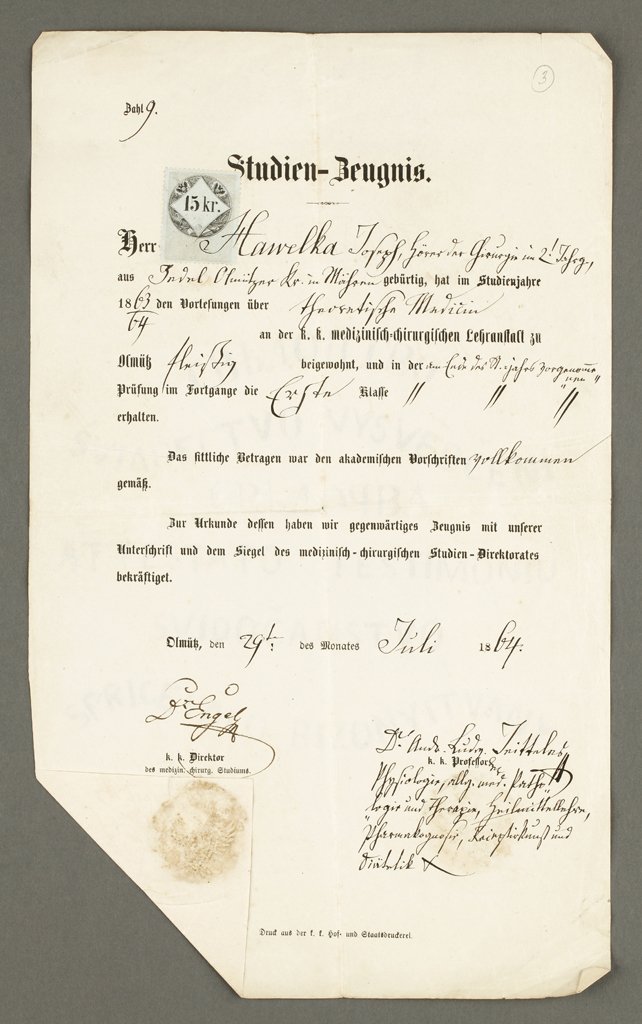 3
Zahl 9.
Studien-Zeugnis.
15 kr.
Herr Hawelka Joseph, Hörer der Chirurgie im 2t. Jahrg.,
aus Olmützer Kr. in Mähren gebürtig, hat im Studienjahre
1863/64 den Vorlesungen über theoretische Medicin
an der k. k. medizinisch-chirurgischen Lehranstalt zu
Olmütz fleißig beigewohnt, und in der am Ende des St. jahrs vorgenomme-
"nen"
Prüfung im Fortgange die Erste Klasse " " "
erhalten.
Das sittliche Betragen war den akademischen Vorschriften vollkommen
gemäß.
Zur Urkunde dessen haben wir gegenwärtiges Zeugnis mit unserer
Unterschrift und dem Siegel des medizinisch-chirurgischen Studien-Direktorates
bekräftiget.
Olmütz, den 29t. des Monates Juli 1864.
Engel
k. k. Direktor
des medizin. chirurg. Studiums.
Dr. And. Ludg. Jeitteles
k. k. Professor der
Physiologie, allg. med. Patho-
"logie und Therapie, Heilmittellehre,
Pharmakognosie, Rezeptirkunst und
Diätetik
Druck aus der k. k. Hof- und Staatsdruckerei.